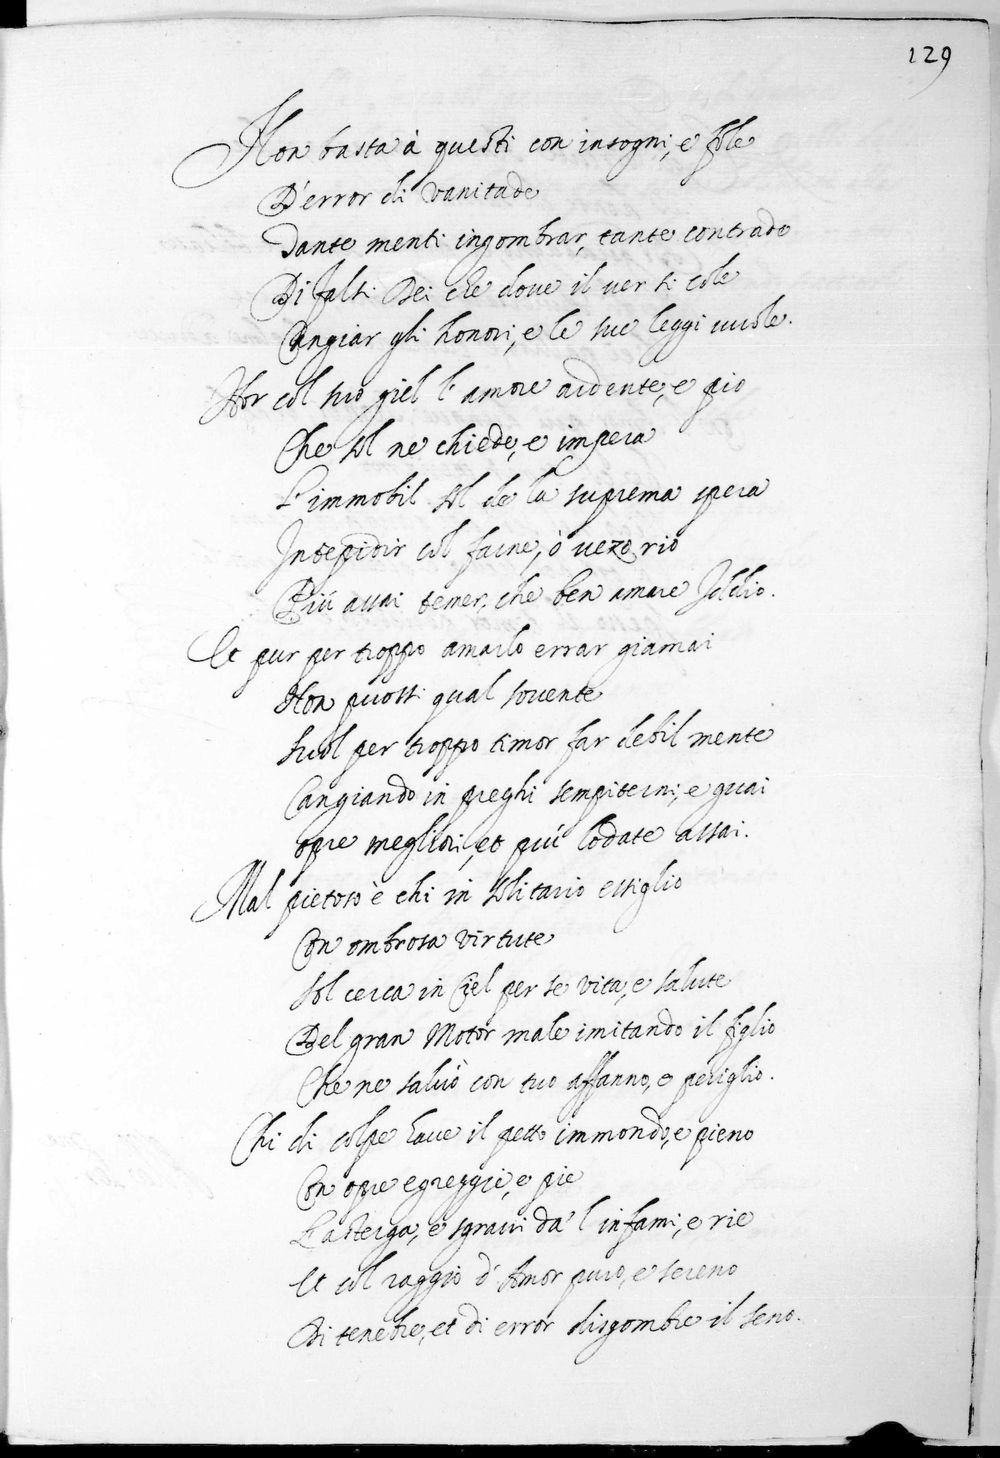 129
Non basta à questi con insogni, e fole
D'error di vanitade
Tante menti ingombrar, tante contrade
Di falsi Dei che dove il ver si cole
Cangiar gli honori, e le sue leggi vuole.
Hor col suo giel l'amore ardente, e pio
Che sol ne chiede, e impera
L'immobil sol de la suprema spera
Intepidir col farne, ò vezo rio
Più assai temer, che ben amare Iddio.
Et pur per troppo amarlo errar giamai
Non puossi qual sovente
Suol per troppo timor far debil mente
Cangiando in preghi sempiterni, e guai
opre megliori, et più lodate assai.
Mal pietoso è chi in solitario essiglio
Con ombrosa virtute
Sol cerca in Ciel per se vita, e salute
Del gran Motor male imitando il figlio
Che ne salvò con suo affanno, e periglio.
Chi di colpe have il petto immondo, e pieno
Con opre egreggie, e pie
L'asterga, e sgravi da l'infami, e rie
Et col raggio d'Amor puro, e sereno
Di tenebre, et di error disgombre il seno.